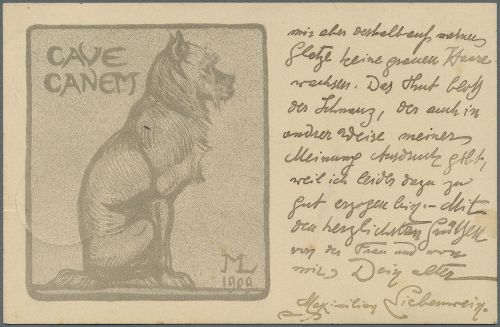 CAVE
CANEM
ML
1909
mir aber deshalb auf meiner
Glatze keine grauen Haare
wachsen. Das thut bloß
der Schnauz, der auch in
andrer Weise meiner
Meinung Ausdruck gibt,
weil ich leider dazu zu
gut erzogen bin. – Mit
den herzlichsten Grüßen
von der Frau und von
mir Dein alter
Maximilian Liebenwein.